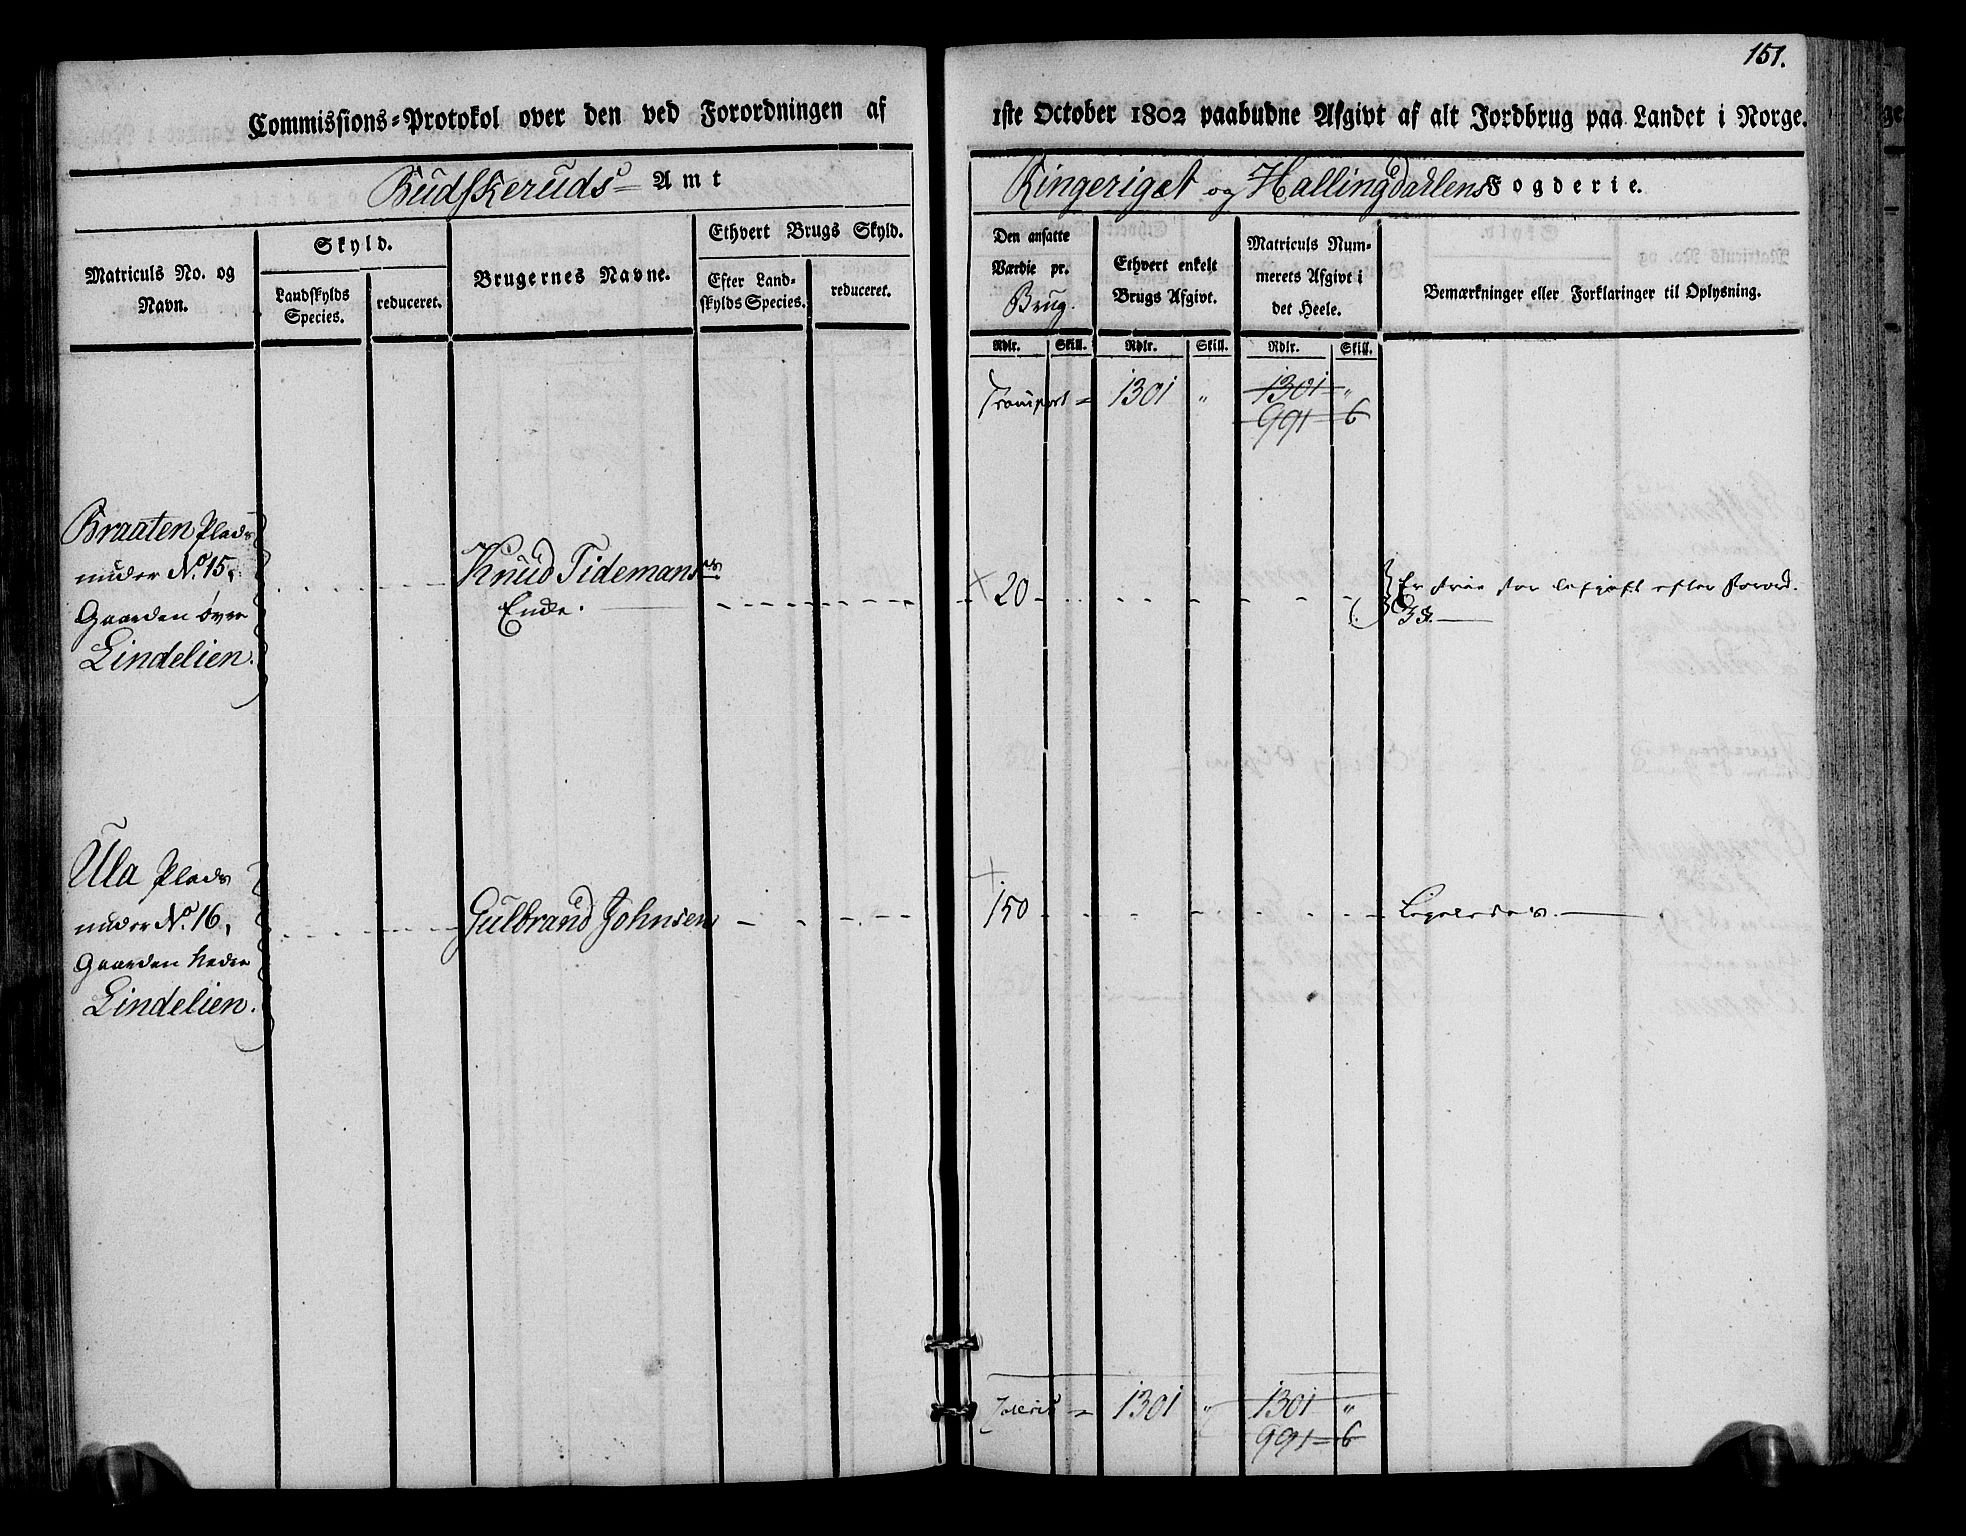 151.
Commissions-Protokol over den ved Forordningen af 1ste October 1802 paabudne Afgivt af alt Jordbrug paa Landet i Norge.
Budskeruds Amt
Ringeriget og Hallingdahlens Fogderie.
Matriculs No. og
Navn.
Skyld.
Landskylds
Species.
reduceret.
Brugernes Navne.
Ethvert Brugs Skyld.
Efter Land-
skylds Species.
reduceret.
Den ansatte
Værdie pr.
Brug.
Ethvert enkelt
Brugs Afgivt.
Matriculs Num-
merets Afgivt i
det Heele.
Bemærkninger eller Forklaringer til Oplysning.
Rdlr. Skill. Rdlr. Skill. Rdlr. Skill.
Transport = 1301 " 1301 "
991 = 6
Braaten Plads
under No. 15,
Gaarden øvre
Lindelien.
Knud Tidemans
Enke.
20
Er frie for Afgivt efter Forord.
3 §.
Ula Plads
under No. 16,
Gaarden nedre
Lindelien.
Gulbrand Johnsen
150
Ligeledes.
Lateris = 1301 " 1301 "
991 = 6